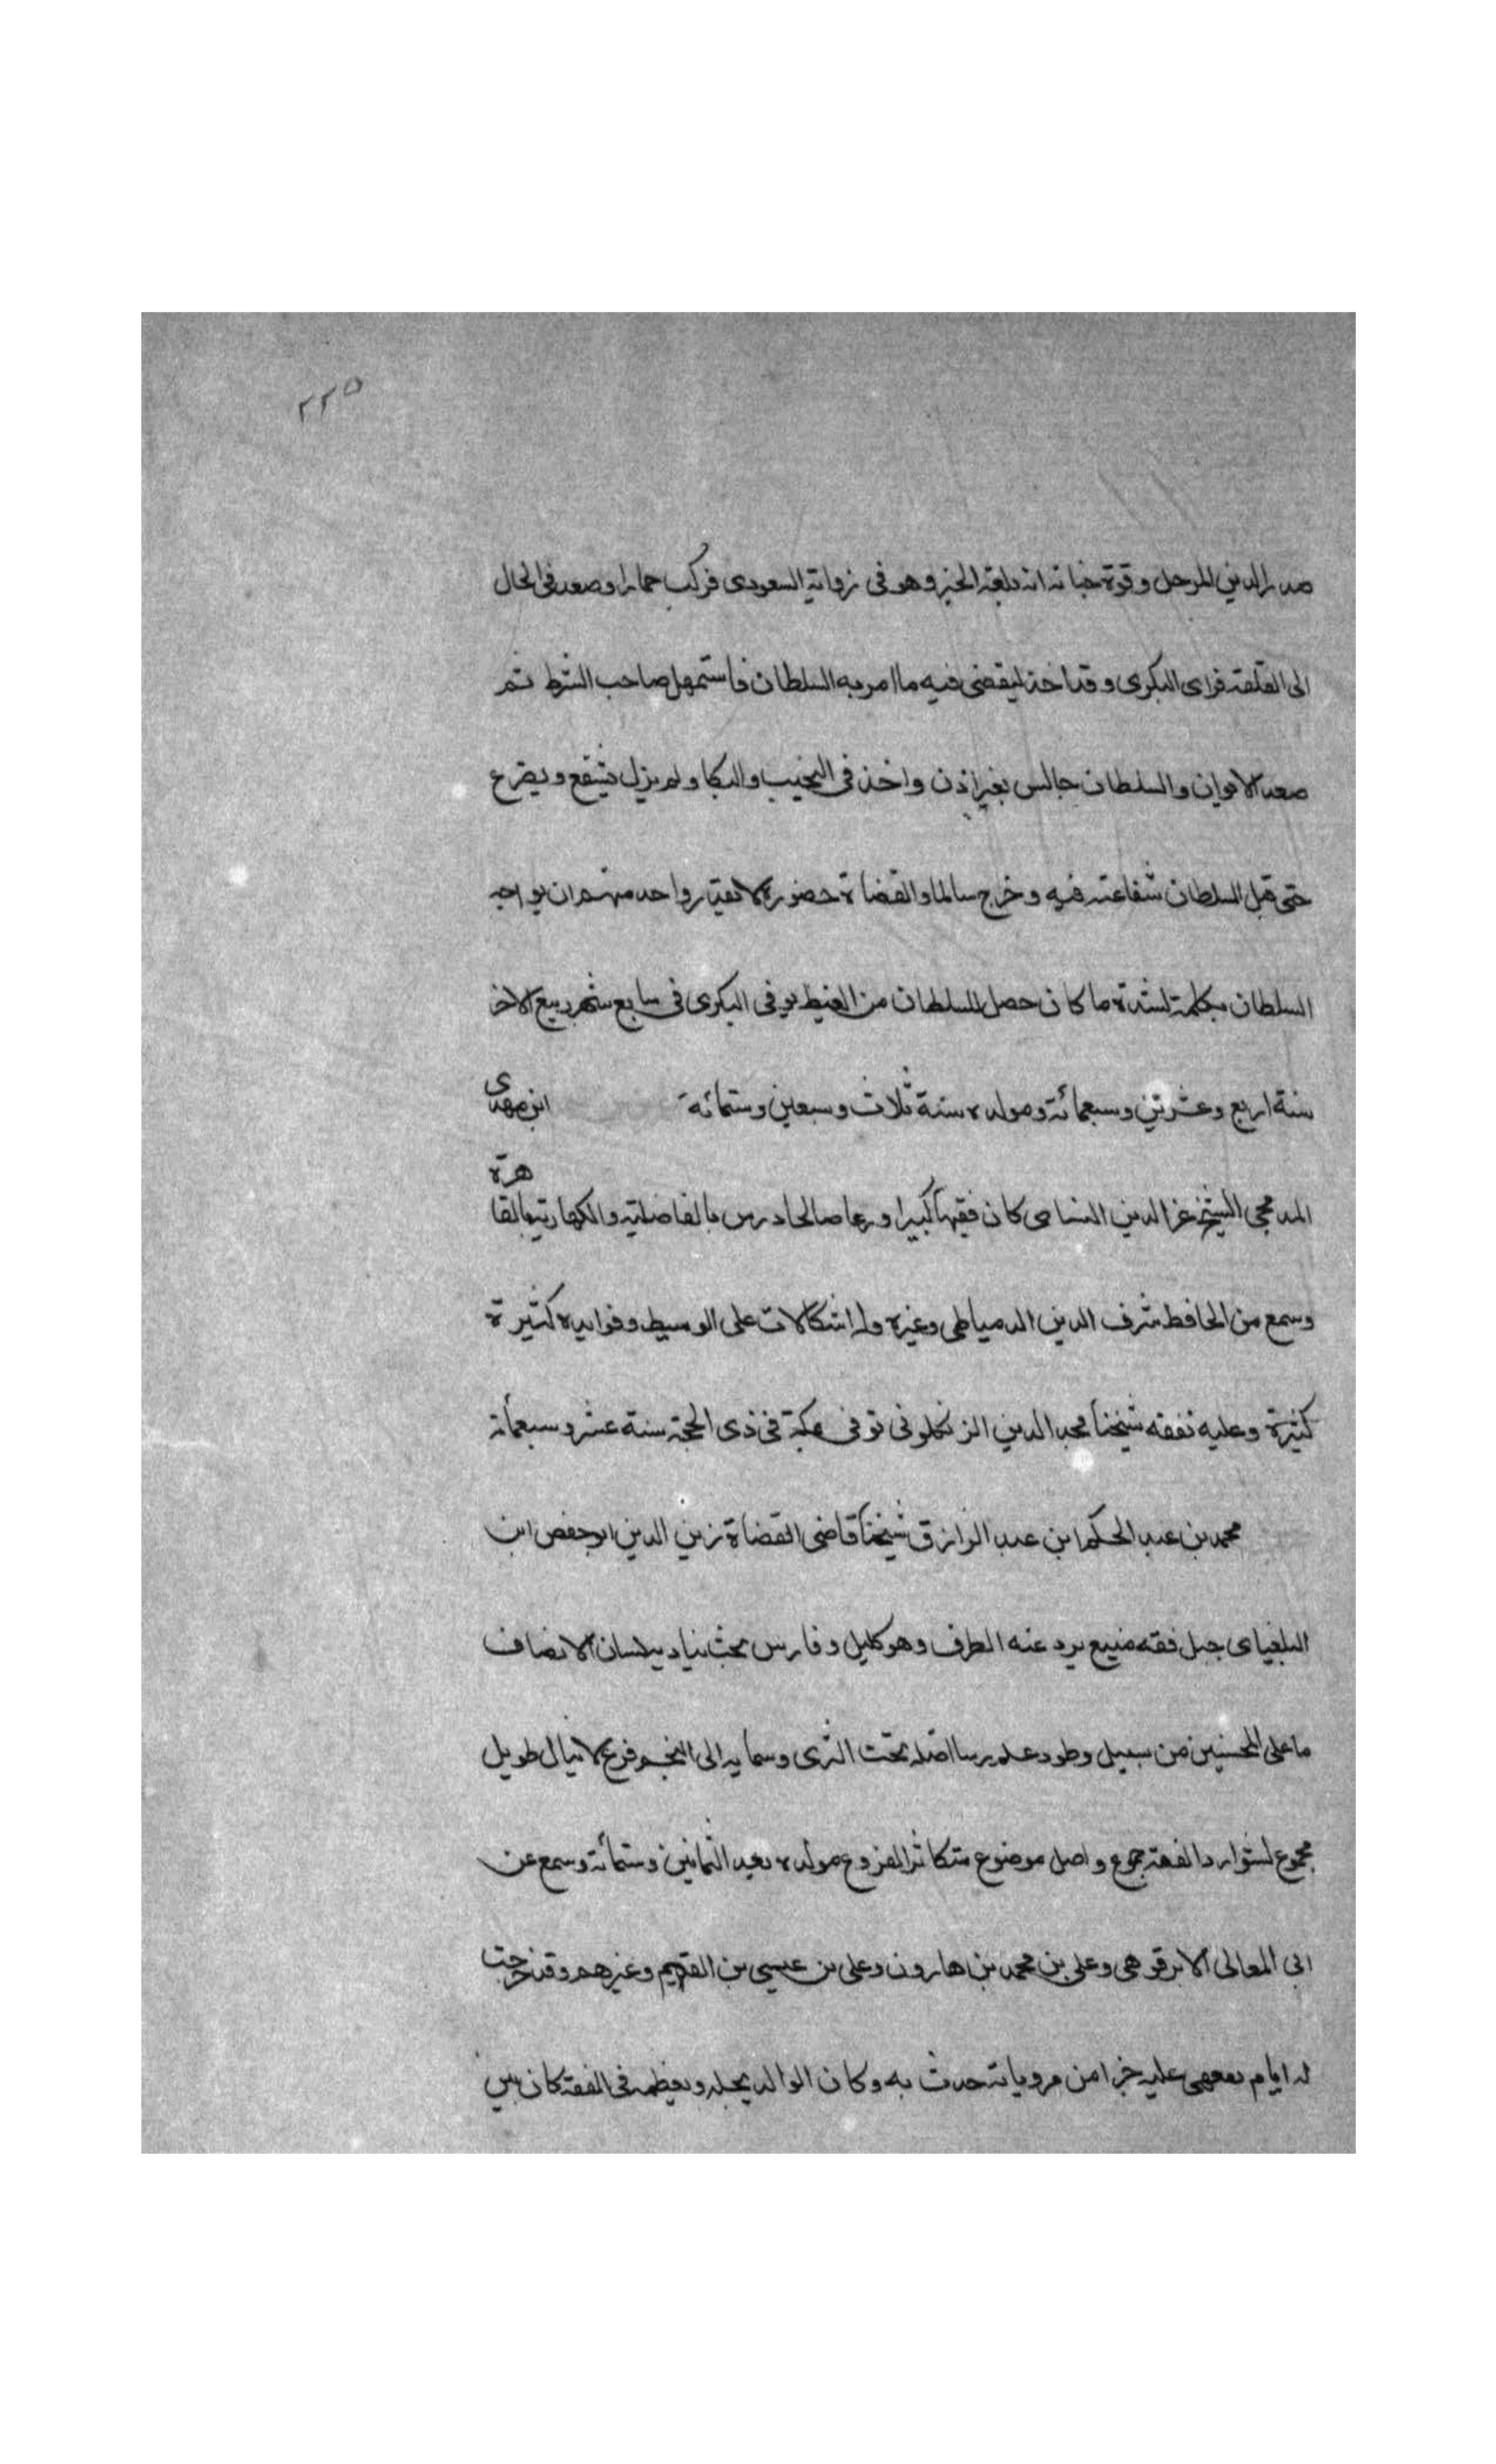 ٢٢٥
صدر الدين المرحل وقوة جنانه انه بلغه الخبر وهو في زواية السعودى فركب حمارا وصعد في الحال
الى القلعة فراى البكرى وقد اخذ ليقضى فيه ما امر به السلطان فاستمهل صاحب الشرط ثم
صعد الايوان والسلطان جالس بغير اذن واخذ في النحيب والبكا ولم يزل يشفع ويضرع
حتى قبل السلطان شفاعته فيه وخرج سالما والقضاة حضور لا يقدر واحد منهم ان يواجه
السلطان بكلمة لشدة ما كان حصل للسلطان من الغيظ توفى البكرى في سابع شهر ربيع الاخر
سنة اربع وعشرين وسبعمائة ومولده سنة ثلاث وسبعين وستمائة ابن مهدى
المدلجى الشيخ عز الدين النشاى كان فقيها كبيرا ورعا صالحا درس بالفاضلية والكهارية بالقاهرة
وسمع من الحافظ شرف الدين الدمياطى وغيره وله اشكالات على الوسيط وفوايده كثيرة
كثيرة وعليه تفقه شيخنا مجد الدين الزنكلونى توفى بمكة في ذى الحجة سنة عشر وسبعمأئة
محمد بن عبد الحكم ابن عبد الرازق شيخنا قاضى القضاة زين الدين ابو حفص ابن
البلفياى جبل فقه منيع يرد عنه الطرف وهو كليل وفارس بحث يناديه لسان الانصاف
ما على المحسنين من سبيل وطود علم رسا اصله تحت الثرى وسما به الى النجم فرع لا ينال طويل
مجموع لشوارد الفقه جموع واصل موضوع متكاثر الفروع مولده بعيد الثمانين وستمأئة وسمع عن
ابى المعالى الابرقوهى وعلى بن محمد بن هارون وعلى بن عيسى بن القيم وغيرهم وقد خرجت
له ايام عليه جزا من مروياته حدث به وكان الوالد يجله ويعظمه في الفقه كان بين